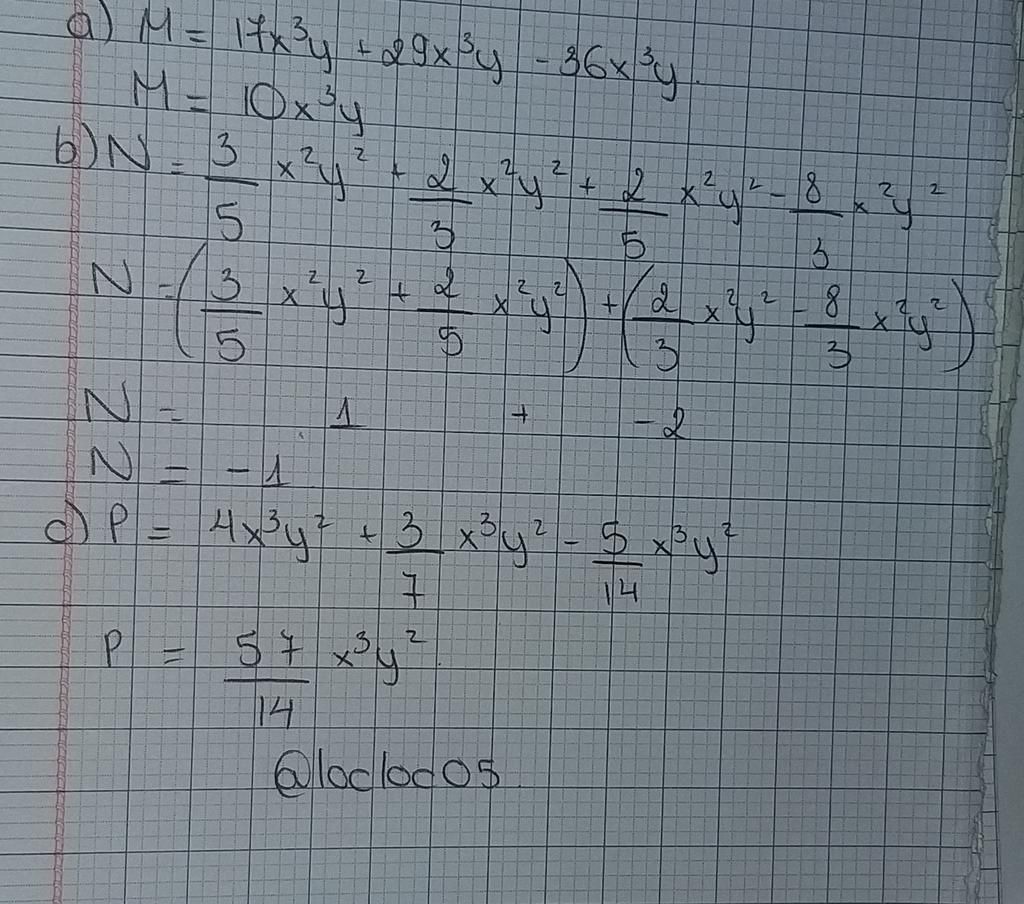 a) M = 17x³y + 29x³y - 36x³y.
M = 10x³y
b) N = 3/5 x²y² + 2/3 x²y² + 2/5 x²y² - 8/3 x²y²
N = (3/5 x²y² + 2/5 x²y²) + (2/3 x²y² - 8/3 x²y²)
N = 1 + -2
N = -1
c) P = 4x³y² + 3/7 x³y² - 5/14 x³y²
P = 57/14 x³y²
@locloc05